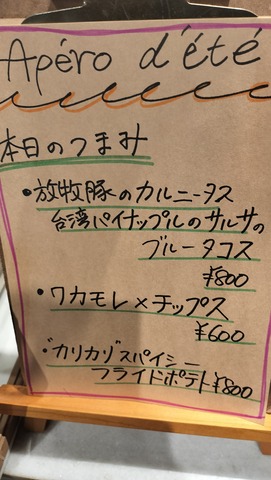 Apéro d'été
本日のつまみ
・放牧豚のカルニータス
台湾パイナップルのサルサの
ブルータコス
¥800
・ワカモレ×チップス
¥600
・"カリカリ"スパイシー
フライドポテト¥800